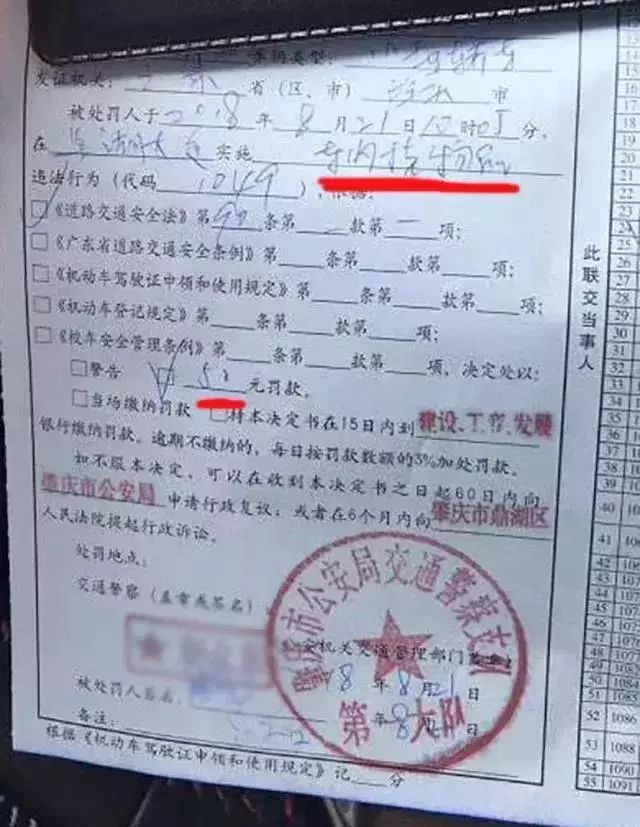 车辆类型:
发证机关: 广东 省(区、市) 肇庆 市
被处罚人于 2018 年 8 月 21 日 时 分,
在 实施
违法行为(代码 1049 ),依据:
《道路交通安全法》第 90 条第 款第 一 项;
《广东省道路交通安全条例》第 条第 款第 项;
《机动车驾驶证申领和使用规定》第 条第 款第 项;
《机动车登记规定》第 条第 款第 项;
《校车安全管理条例》第 条第 款第 项、决定处以:
警告 50 元罚款。
当场缴纳罚款 持本决定书在15日内到 建设、工商、发展
银行缴纳罚款。逾期不缴纳的,每日按罚款数额的3%加处罚款。
如不服本决定,可以在收到本决定书之日起60日内向
肇庆市公安局 申请行政复议;或者在6个月内向 肇庆市鼎湖区
人民法院提起行政诉讼。
处罚地点:
交通警察(盖章或签名)
公安机关交通管理部门
肇庆市公安局交通警察支队
18 年 8 月 21 日
第八大队
被处罚人签名:
年 8 月 日
备注:
根据《机动车驾驶证申领和使用规定》记 分
此联交当事人
15
16
17
18
19
20
21
22
23
24
25
26
27
28
29
30
31
32
33
34
35
36
37
38
39
40 106
41 107
42
43 107
44 107
45 107
46 107
47 107
48 1080
49 1081
50 1082
51 1083
52 1086
53 1088
54 1090
55 1091